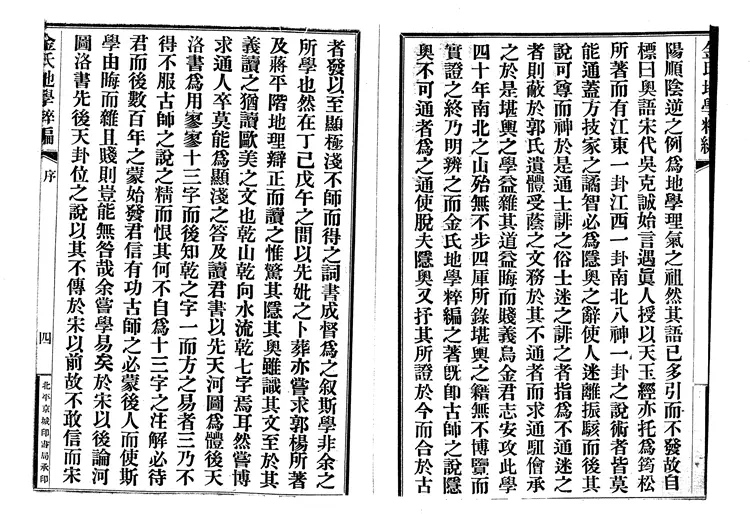 金氏地學粹編
陽順陰逆之例爲地學理氣之祖然其語已多引而不發故自
標曰奥語宋代吳克誠始言遇眞人授以天玉經亦托爲筠松
所著而有江東一卦江西一卦南北八神一卦之說術者皆莫
能通蓋方技家之譎智必爲隱奥之辭使人迷離振駭而後其
說可尊而神於是通士誹之俗士迷之誹之者指爲不通迷之
者則蔽於郭氏遺體受蔭之文務於其不通者而求通駔儈承
之於是堪輿之學益雜其道益晦而賤義烏金君志安攻此學
四十年南北之山殆無不步四厙所錄堪輿之籍無不博覽而
實證之終乃明辨之而金氏地學粹編之著旣卽古師之說隱
奥不可通者爲之通使脫夫隱奥又抒其所證於今而合於古
者發以至顯極淺不師而得之詞書成督爲之叙斯學非余之
所學也然在丁己戊午之間以先妣之卜葬亦嘗求郭楊所著
及將平階地理辯正而讀之惟驚其隱其奥雖識其文至於其
義讀之猶讀歐美之文也乾山乾向水流乾七字焉耳然嘗博
求通人卒莫能爲顯淺之答及讀君書以先天河圖爲體後天
洛書爲用寥寥十三字而後知乾之字一而方之易者三乃不
得不服古師之說之精而恨其何不自爲十三字之注解必待
君而後數百年之蒙始發君信有功古師之必蒙後人而使斯
學由晦而雜且賤則豈能無咎哉余嘗學易矣於宋以後論河
圖洛書先後天卦位之說以其不傳於宋以前故不敢信而宋
金氏地學粹編
序
四
北平京城印書局承印